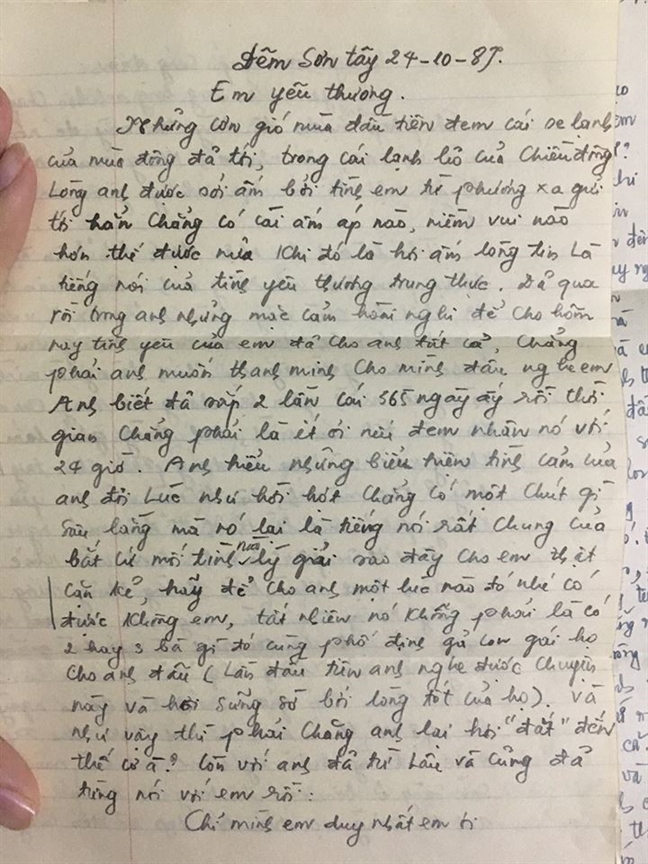 Đêm Sơn tây 24-10-85.
Em yêu thương.
Những cơn gió mùa đầu tiên đem cái se lạnh
của mùa đông đã tới, trong cái lạnh lẽo của Chiều đông
Lòng anh được sưởi ấm bởi tình em từ phương xa gửi
tới hẳn chẳng có cái ấm áp nào, niềm vui nào
hơn thế được nữa khi đó là hơi ấm lòng tin là
tiếng nói của tình yêu thương trung thực. Đã qua
rồi trong anh những mặc cảm hoài nghi để cho hôm
nay tình yêu của em đã cho anh tất cả, chẳng
phải anh muốn thanh minh cho mình đâu nghe em
Anh biết đã sắp 2 lần cái 365 ngày ấy rồi thời
gian chẳng phải là ít ỏi nếu đem nhân nó với
24 giờ. Anh hiểu những biểu hiện tình cảm của
anh đôi lúc như hời hợt chẳng có một chút gì
sâu lắng mà nó lại là tiếng nói rất chung của
bất cứ mối tình nào lý giải sao đây cho em thật
cặn kẽ, hãy để cho anh một lúc nào đó nhé có
được không em, tất nhiên nó không phải là có
2 hay 3 bà gì đó cùng phố định gả con gái họ
cho anh đâu (Lần đầu tiên anh nghe được chuyện
này và hơi sững sờ bởi lòng tốt của họ). Và
như vậy thì phải chăng anh lại hơi "đắt" đến
thế cơ à? Còn với anh đã từ lâu và cũng đã
từng nói với em rồi:
Chỉ mình em duy nhất em ơi